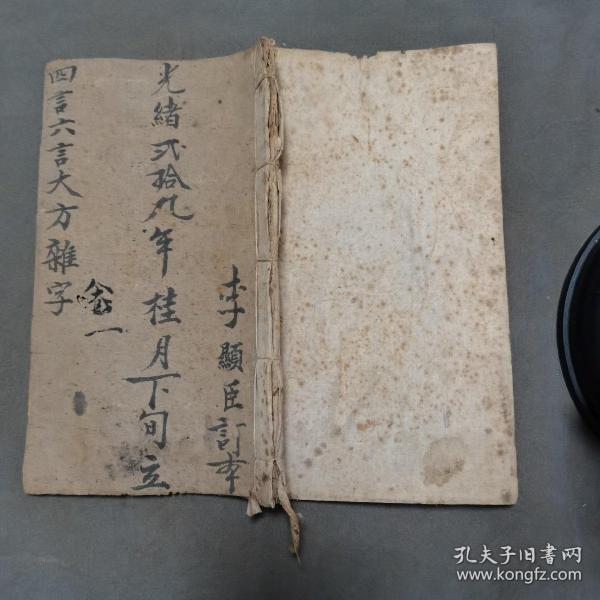 李顯臣訂本
光緒弍拾九年桂月下旬立
四言六言大方雜字
一
孔夫子旧书网
www.kongfz.com